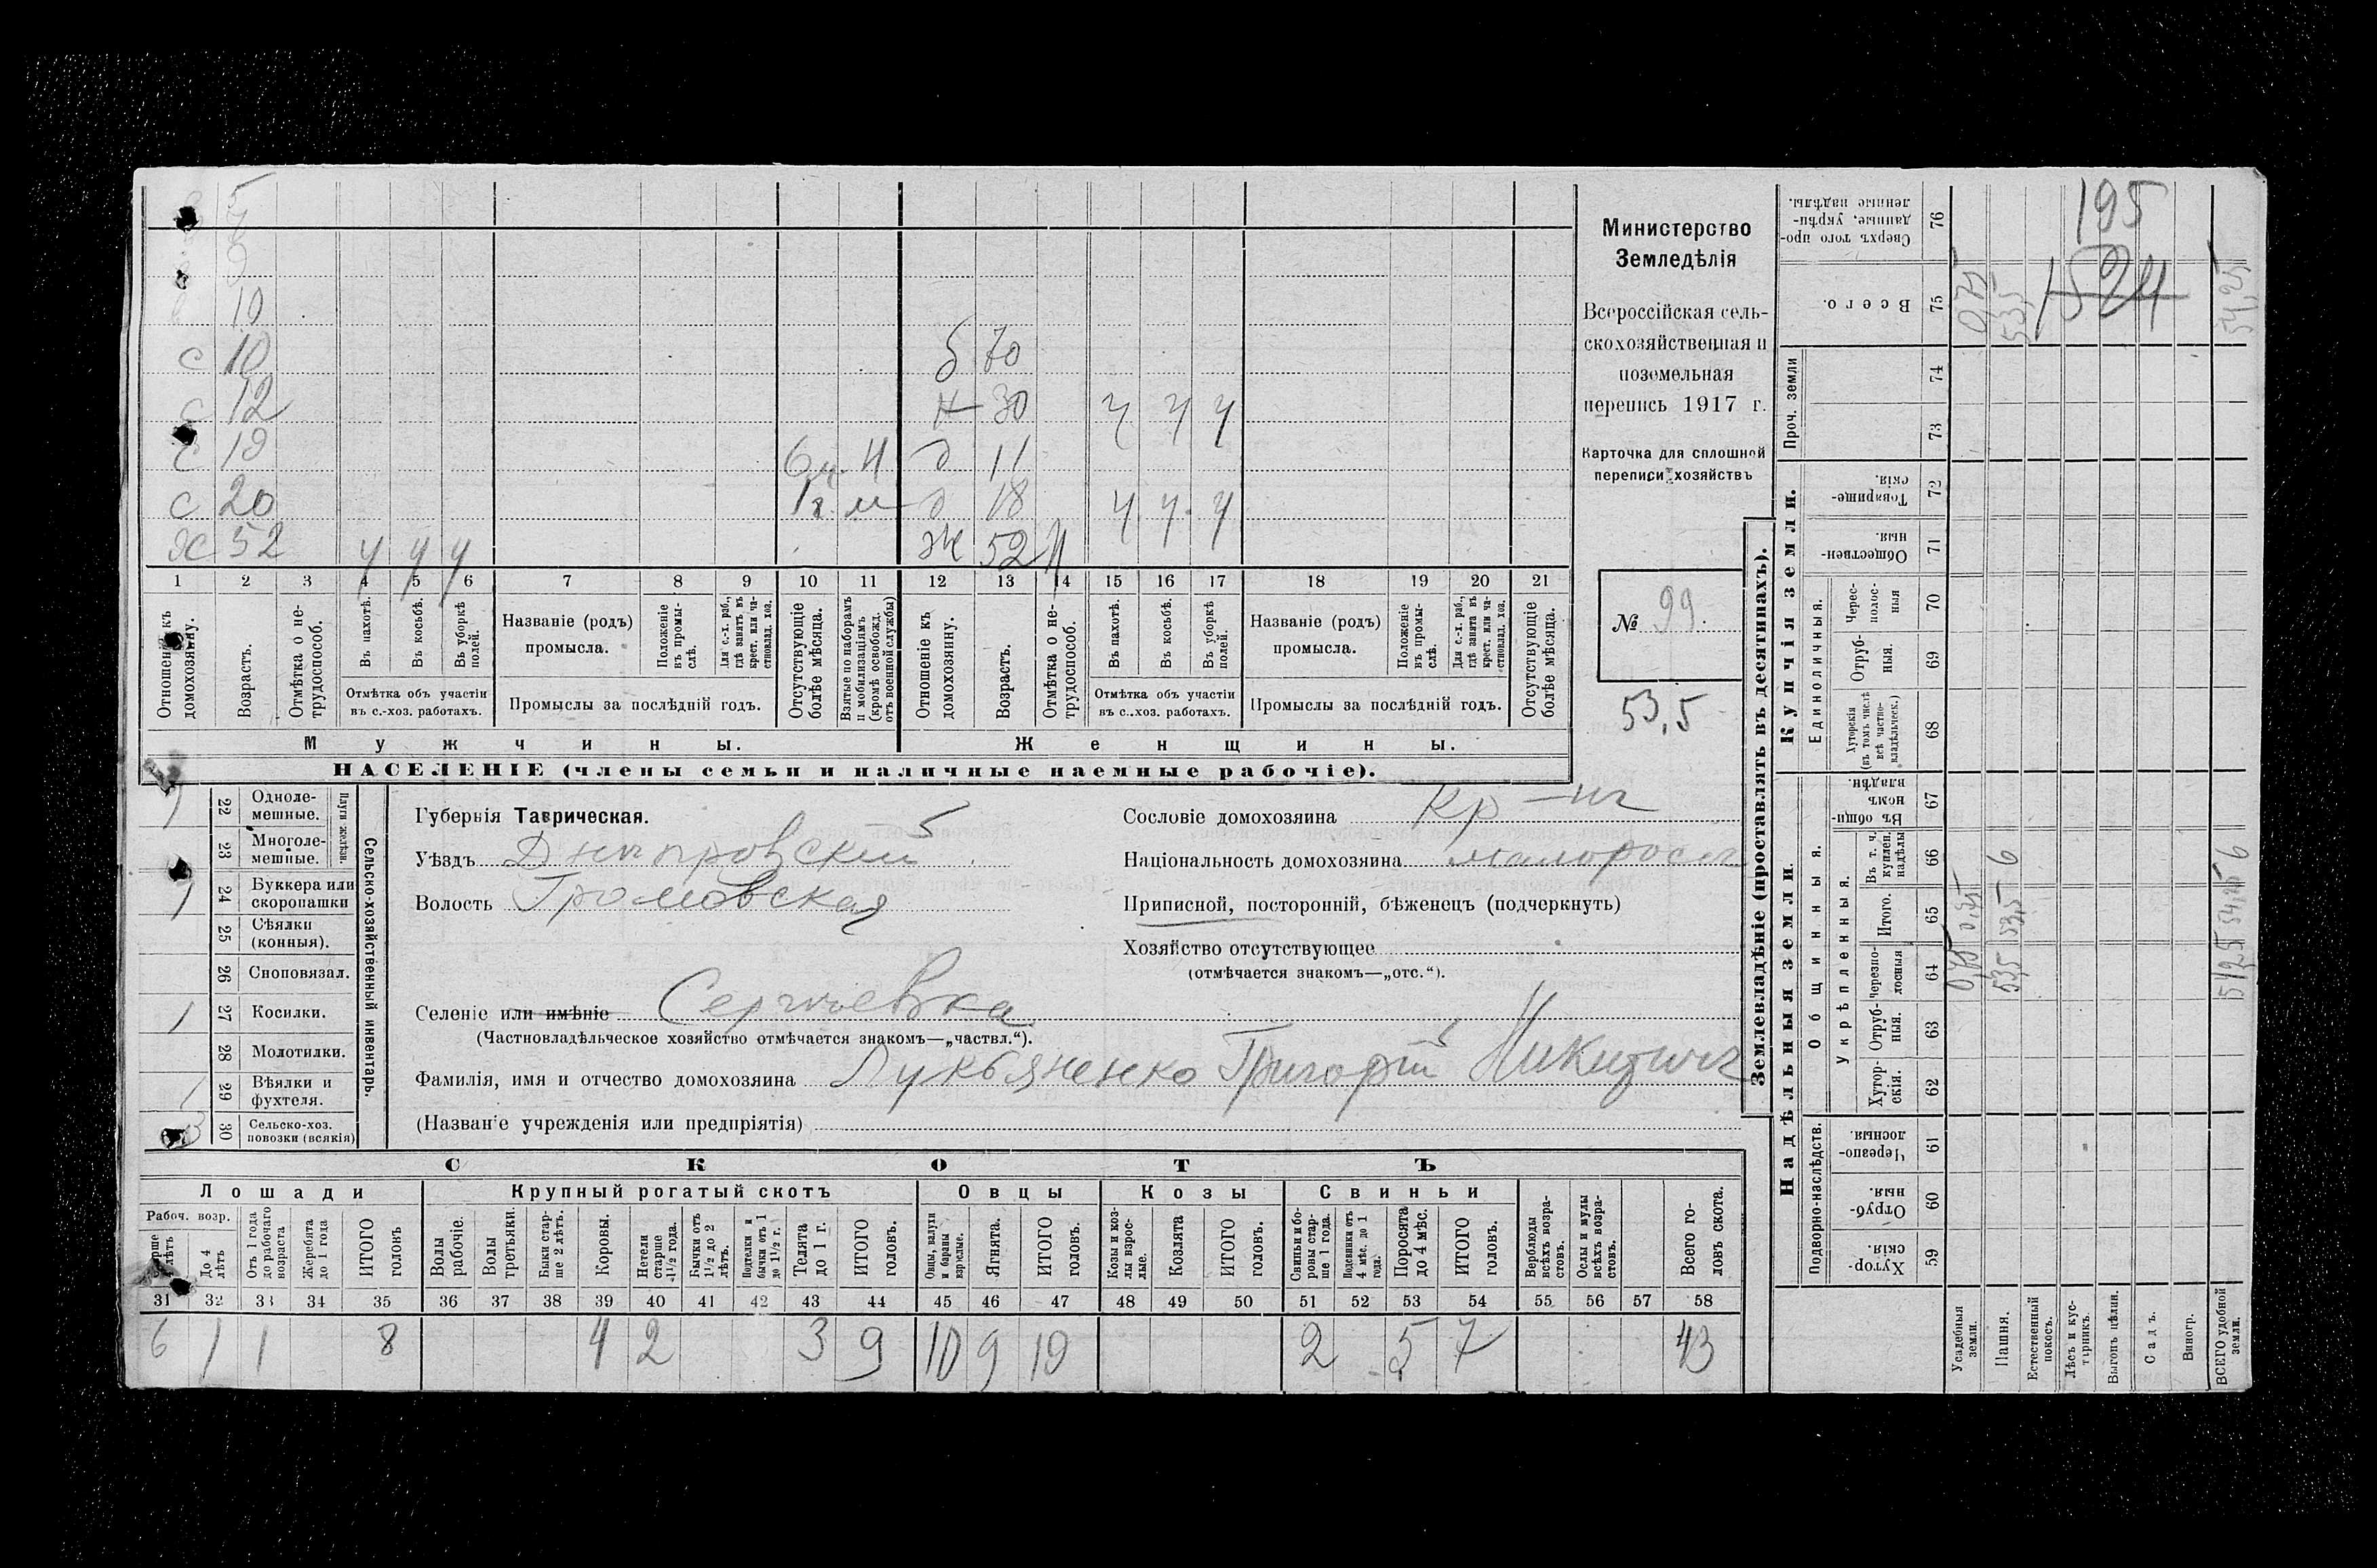 5
7
9
10
с 10 б 70
с 12 н 30 ч ч ч
с 19 6 м. Н д 11
с 20 1 г. м д 18 ч ч ч
Ж 52 ч ч ч Ж 52 Н
1 2 3 4 5 6 7 8 9 10 11 12 13 14 15 16 17 18 19 20 21
Отношеніе къ домохозяину.
Возрастъ.
Отмѣтка о не-трудоспособ.
Въ пахотѣ.
Въ косьбѣ.
Въ уборкѣ полей.
Отмѣтка объ участіи въ с.-хоз. работахъ.
Названіе (родъ) промысла.
Положеніе въ промы-слѣ.
Для с.-х. раб., гдѣ занятъ въ крест. или ча-стновлад. хоз.
Промыслы за послѣдній годъ.
Отсутствующіе болѣе мѣсяца.
Взятые по наборамъ и мобилизаціямъ (кромѣ освобожд. отъ военной службы)
Отношеніе къ домохозяину.
Возрастъ.
Отмѣтка о не-трудоспособ.
Въ пахотѣ.
Въ косьбѣ.
Въ уборкѣ полей.
Отмѣтка объ участіи въ с.-хоз. работахъ.
Названіе (родъ) промысла.
Положеніе въ промы-слѣ.
Для с.-х. раб., гдѣ занята въ крест. или ча-стновлад. хоз.
Промыслы за послѣдній годъ.
Отсутствующіе болѣе мѣсяца.
Мужчины.
Женщины.
НАСЕЛЕНІЕ (члены семьи и наличные наемные рабочіе).
Министерство
Земледѣлія
Всероссійская сель-
скохозяйственная и
поземельная
перепись 1917 г.
Карточка для сплошной
переписи хозяйствъ
№ 99
53,5
Сельско-хозяйственный инвентарь.
Плуги желѣзн.
1 22 Одноле-мешные.
23 Многоле-мешные.
1 24 Буккера или скоропашки
25 Сѣялки (конныя).
26 Сноповязал.
1 27 Косилки.
28 Молотилки.
1 29 Вѣялки и фухтеля.
3 30 Сельско-хоз. повозки (всякія)
Губернія Таврическая.
5
Уѣздъ Днѣпровский
Волость Громовская
Селеніе или имѣніе Сергѣевка
(Частновладѣльческое хозяйство отмѣчается знакомъ—„частвл.“).
Фамилія, имя и отчество домохозяина Лукьяненко Григорій Никитич
(Названіе учрежденія или предпріятія)
Сословіе домохозяина кр-нъ
Національность домохозяина малоросъ
Приписной, посторонній, бѣженецъ (подчеркнуть)
Хозяйство отсутствующее
(отмѣчается знакомъ—„отс.“).
СКОТЪ
Лошади Крупный рогатый скотъ Овцы Козы Свиньи
Рабоч. возр.
Старше 4 лѣтъ
До 4 лѣтъ
Отъ 1 года до рабочаго возраста
Жеребята до 1 года
ИТОГО головъ
Волы рабочіе.
Волы третьяки.
Быки стар-ше 2 лѣтъ.
Коровы.
Нетели старше 1 1/2 года.
Бычки отъ 1 1/2 до 2 лѣтъ.
Подтелки и бычки отъ 1 до 1 1/2 г.
Телята до 1 г.
ИТОГО головъ.
Овцы, валухи и бараны взрослые.
Ягнята.
ИТОГО головъ.
Козы и коз-лы взрос-лые.
Козлята
ИТОГО головъ.
Свиньи и бо-ровы стар-ше 1 года.
Подсвинки отъ 4 мѣс. до 1 года.
Поросята до 4 мѣс.
ИТОГО головъ.
Верблюды всѣхъ возра-стовъ.
Ослы и мулы всѣхъ возра-стовъ.
Всего го-ловъ скота.
31 32 33 34 35 36 37 38 39 40 41 42 43 44 45 46 47 48 49 50 51 52 53 54 55 56 57 58
6 1 1 8 4 2 3 9 10 9 19 2 5 7 43
Землевладѣніе (проставлять въ десятинахъ).
Надѣльныя земли.
Купчія земли.
Проч. земли
Общинныя.
Укрѣпленныя.
Подворно-наслѣдств.
Единоличныя.
Сверхъ того про-данные, укрѣп-ленные надѣлы. 76
Всего. 75
74
73
Товарище-скія. 72
Обществен-ныя. 71
Черес-полос-ныя 70
Отруб-ныя. 69
Хуторскія (въ томъ числѣ всѣ частно-владѣльческ.) 68
Въ общин-номъ владѣн. 67
Въ т. ч. куплен. надѣлы 66
Итого. 65
Черезпо-лосныя 64
Отруб-ныя. 63
Хутор-скія. 62
Черезпо-лосныя. 61
Отруб-ныя. 60
Хутор-скія. 59
Усадебныя земли.
0,75
0,75
Пашня.
53,5 53,5 6
53,5
Естественный покосъ.
Лѣсъ и кус-тарникъ.
Выгонъ цѣлин.
Садъ.
Виногр.
ВСЕГО удобной земли.
54,25 54,25 6
54,25
195
1524